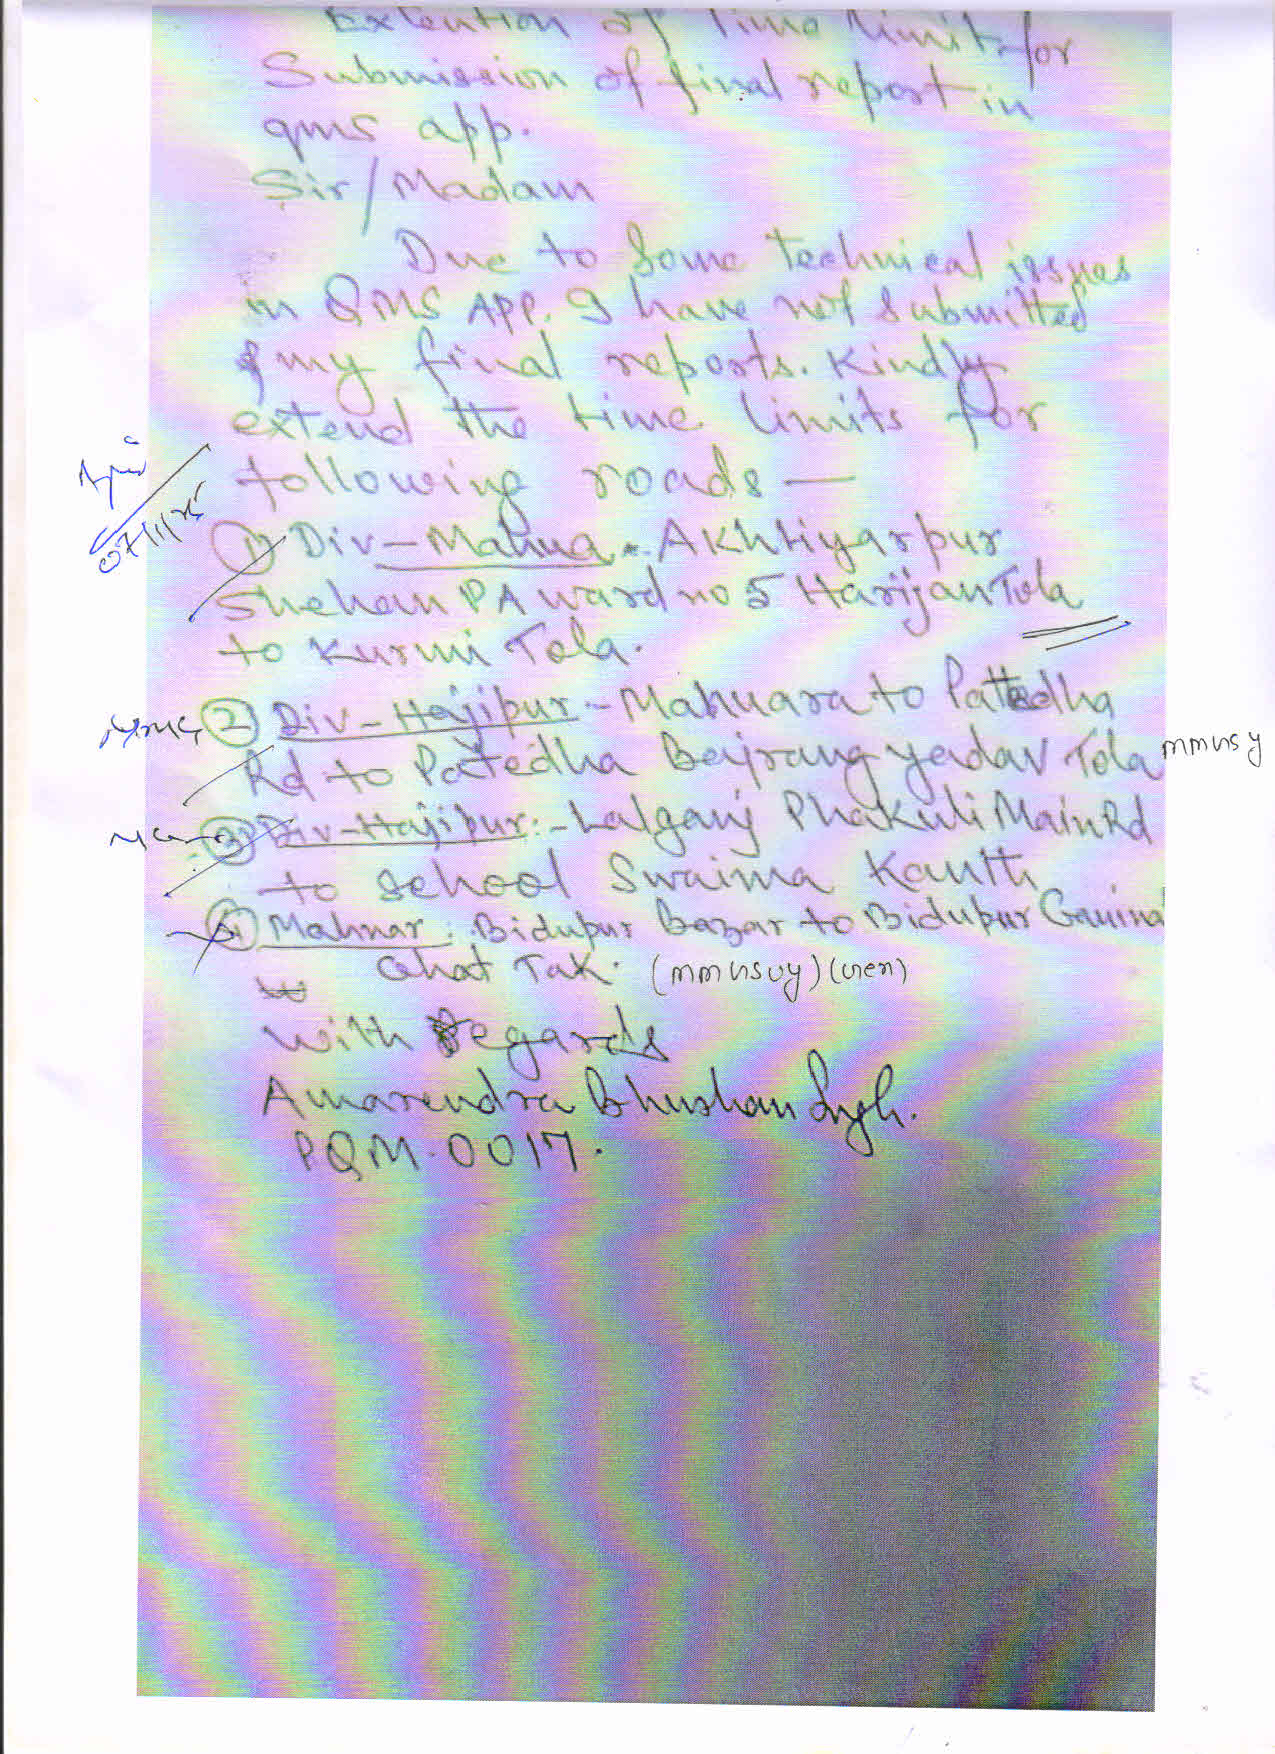 Extention of Time limit for
Submission of final report in
qms app.
Sir/Madam
Due to Some technical issues
in QMS APP. I have not submitted
my final reports. Kindly
extend the time limits for
following roads —
07/11/25
1) Div-Mahua - Akhtiyarpur
Shehan PA ward no 5 Harijan Tola
to Kurmi Tola.
2) Div-Hajipur - Mahuara to Patedha
Rd to Patedha Bajrang yadav Tola mmgsy
3) Div-Hajipur:- Lalganj Phakuli Main Rd
to School Swaima Kauth
Mahnar: Bidupur Bazar to Bidupur
Ghat Tak.
With Regards
Amarendra Bhushan Singh.
PQM-0017.